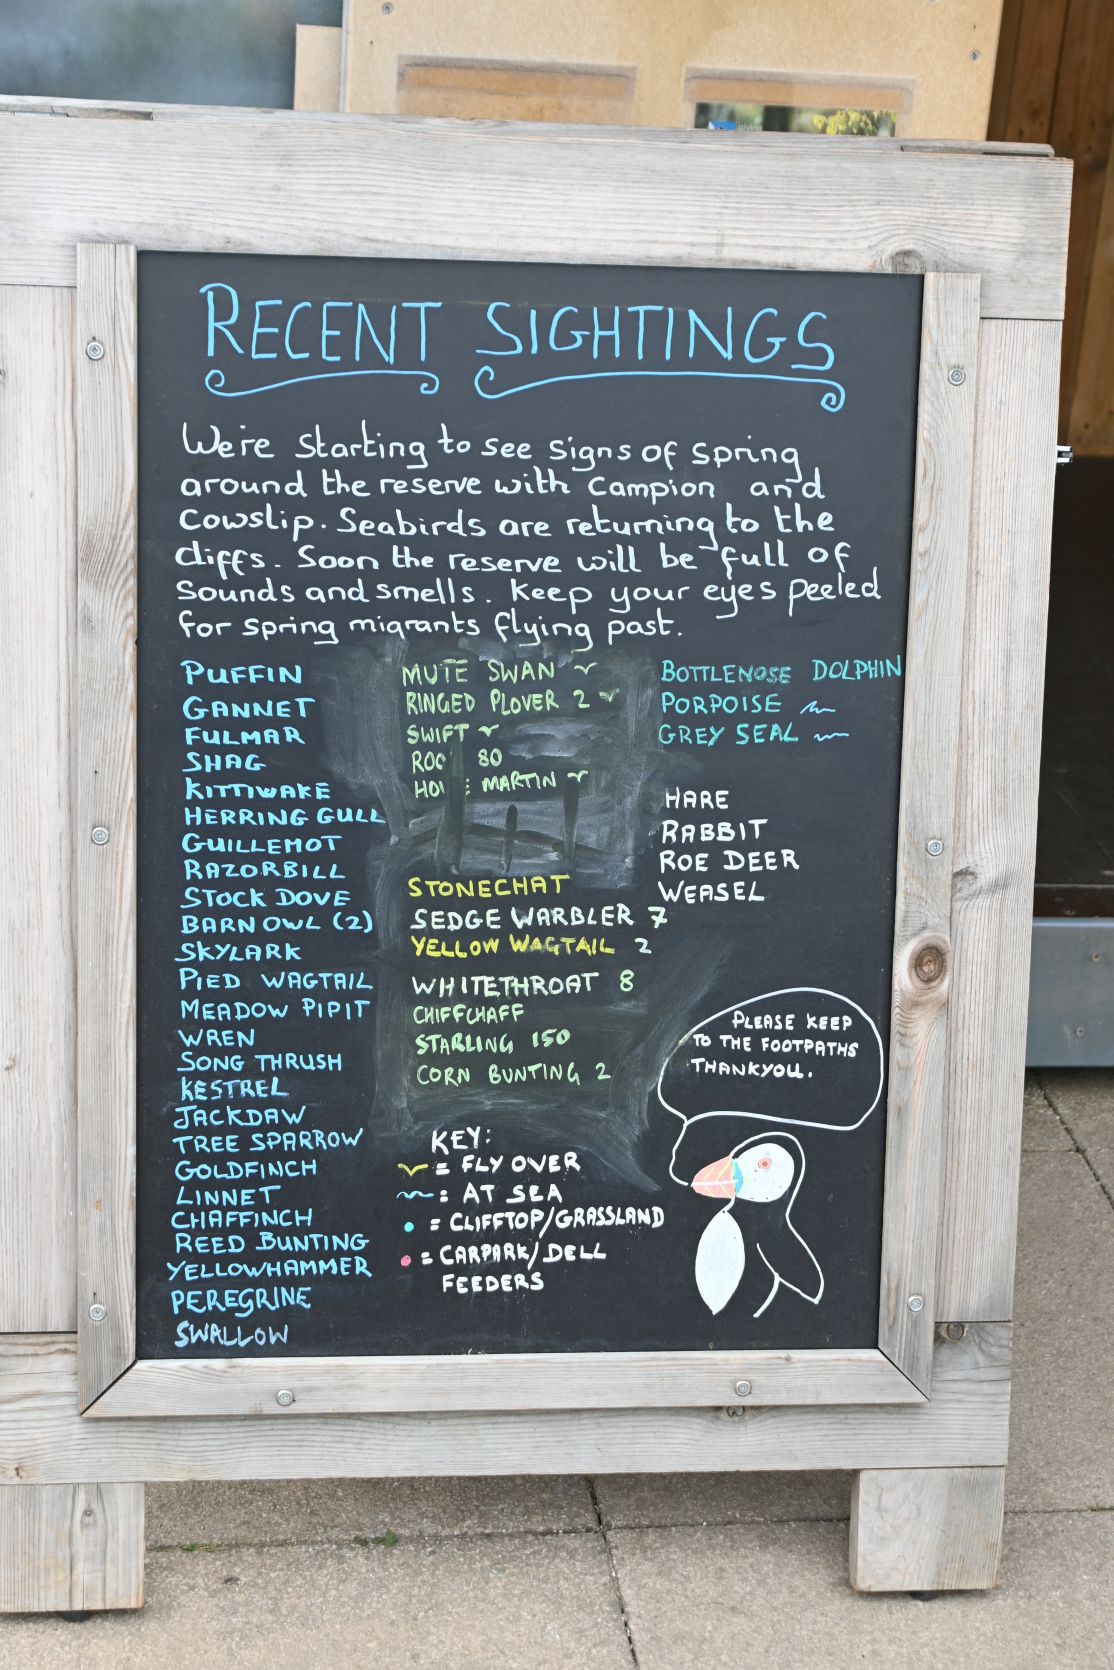 giving
RECENT SIGHTINGS
We're starting to see signs of spring
around the reserve with Campion and
Cowslip. Seabirds are returning to the
cliffs. Soon the reserve will be full of
sounds and smells. Keep your eyes peeled
for spring migrants flying past.
PUFFIN
GANNET
FULMAR
SHAG
KITTIWAKE
HERRING GULL
GUILLEMOT
RAZORBILL
STOCK DOVE
BARN OWL (2)
SKYLARK
PIED WAGTAIL
MEADOW PIPIT
WREN
SONG THRUSH
KESTREL
JACKDAW
TREE SPARROW
GOLDFINCH
LINNET
CHAFFINCH
REED BUNTING
YELLOWHAMMER
PEREGRINE
SWALLOW
MUTE SWAN
RINGED PLOVER 2
SWIFT
80
MARTIN
STONECHAT
SEDGE WARBLER 7
YELLOW WAGTAIL 2
WHITETHROAT 8
CHIFFCHAFF
STARLING 150
CORN BUNTING 2
KEY:
= FLY OVER
= AT SEA
= CLIFFTOP/GRASSLAND
= CARPARK/DELL
FEEDERS
BOTTLENOSE DOLPHIN
PORPOISE
GREY SEAL
HARE
RABBIT
ROE DEER
WEASEL
PLEASE KEEP
TO THE FOOTPATHS
THANKYOU.